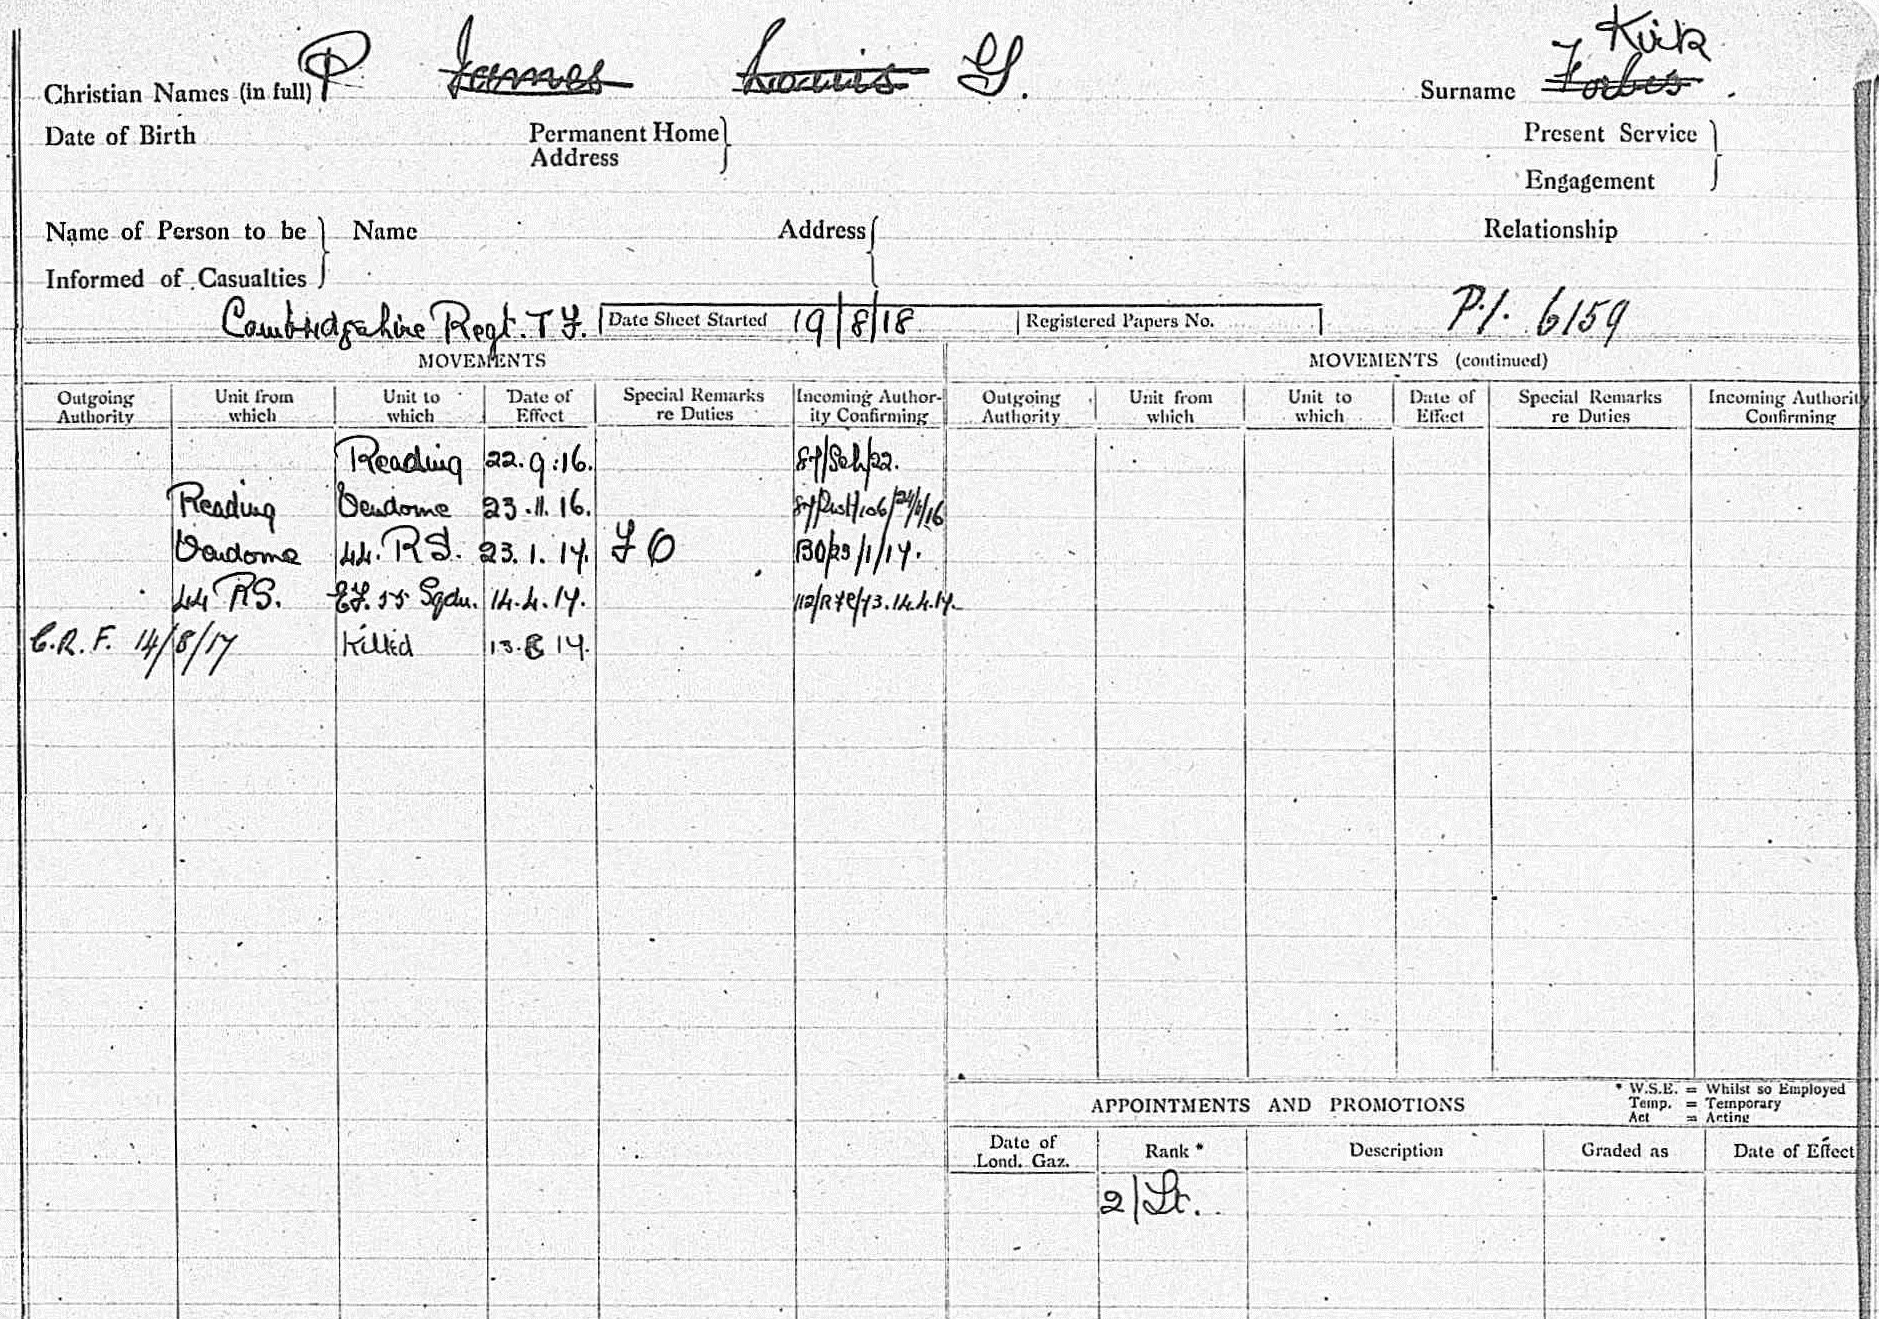 Kirk
Christian Names (in full) P James Louis G. Surname Forbes.
Date of Birth Permanent Home Address Present Service
Engagement
Name of Person to be Informed of Casualties Name Address Relationship
Cambridgshire Regt. T F. Date Sheet Started 19/8/18 Registered Papers No. P./. 6159
MOVEMENTS MOVEMENTS (continued)
Outgoing Authority Unit from which Unit to which Date of Effect Special Remarks re Duties Incoming Author-ity Confirming Outgoing Authority Unit from which Unit to which Date of Effect Special Remarks re Duties Incoming Authority Confirming
Reading 22.9.16. 87/Sch/22.
Reading Vendome 23.11.16.
Vendome 44. RS. 23.1.17. F O BO/23/1/17.
44 RS. EF. 55 Sqdn. 14.4.17. 112/RFC/73.14.4.17.
C.R.F. 14/8/17 Killed 13.8 17.
* W.S.E. = Whilst so Employed
APPOINTMENTS AND PROMOTIONS Temp. = Temporary
Act = Acting
Date of Lond. Gaz. Rank * Description Graded as Date of Effect
2/Lt.